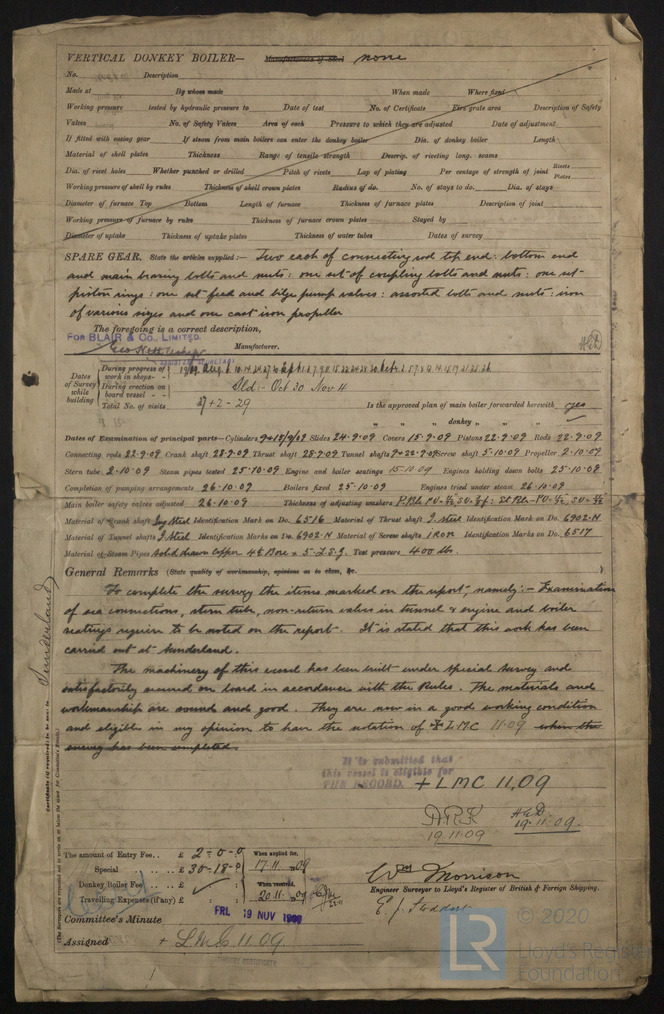 VERTICAL DONKEY BOILER— Manufacturers of steel none
No. Description
Made at By whom made When made Where fixed
Working pressure tested by hydraulic pressure to Date of test No. of Certificate Fire grate area Description of Safety
Valves No. of Safety Valves Area of each Pressure to which they are adjusted Date of adjustment
If fitted with easing gear If steam from main boilers can enter the donkey boiler Dia. of donkey boiler Length
Material of shell plates Thickness Range of tensile strength Descrip. of riveting long. seams
Dia. of rivet holes Whether punched or drilled Pitch of rivets Lap of plating Per centage of strength of joint Rivets Plates
Working pressure of shell by rules Thickness of shell crown plates Radius of do. No. of stays to do. Dia. of stays
Diameter of furnace Top Bottom Length of furnace Thickness of furnace plates Description of joint
Working pressure of furnace by rules Thickness of furnace crown plates Stayed by
Diameter of uptake Thickness of uptake plates Thickness of water tubes Dates of survey
SPARE GEAR. State the articles supplied:— Two each of connecting rod top end: bottom end
and main bearing bolts and nuts: one set of coupling bolts and nuts: one set
piston rings: one set feed and bilge pump valves: assorted bolts and nuts: iron
of various sizes and one cast iron propeller
The foregoing is a correct description,
FOR BLAIR & Co., LIMITED,
Manufacturer.
Dates of Survey while building
During progress of work in shops - -
During erection on board vessel - - - Sld:- Oct 30 Nov 4
Total No. of visits 27+2-29 Is the approved plan of main boiler forwarded herewith yes
" " " donkey " " "
Dates of Examination of principal parts—Cylinders 9+18/9/09 Slides 24.9.09 Covers 15.9.09 Pistons 22.9.09 Rods 22.9.09
Connecting rods 22.9.09 Crank shaft 28.9.09 Thrust shaft 28.9.09 Tunnel shafts 9+22.9.09 Screw shaft 5.10.09 Propeller 2.10.09
Stern tube 2.10.09 Steam pipes tested 25.10.09 Engine and boiler seatings 15.10.09 Engines holding down bolts 25.10.09
Completion of pumping arrangements 26.10.09 Boilers fixed 25.10.09 Engines tried under steam 26.10.09
Main boiler safety valves adjusted 26.10.09 Thickness of adjusting washers
Material of Crank shaft Ing Steel Identification Mark on Do. 6516 Material of Thrust shaft I. steel Identification Mark on Do. 6902.N
Material of Tunnel shafts I. Steel Identification Marks on Do. 6902.N Material of Screw shafts Iron Identification Marks on Do. 6517
Material of Steam Pipes solid drawn Copper 4½ Bore × 5. I.S.G. Test pressure 400 lbs.
General Remarks (State quality of workmanship, opinions as to class, &c.
To complete the survey the items marked on the report, namely:- Examination
of sea connections, stern tube, non-return valves in tunnel & engine and boiler
seatings require to be noted on the report. It is stated that this work has been
carried out at Sunderland.
The machinery of this vessel has been built under special survey and
satisfactorily secured on board in accordance with the Rules. The materials and
workmanship are sound and good. They are now in a good working condition
and eligible in my opinion to have the notation of + L.M.C 11.09 when the
survey has been completed.
It is submitted that
this vessel is eligible for
THE RECORD. + LMC 11,09
19.11.09
19.11.09
The amount of Entry Fee . . £ 2-0-0 When applied for,
Special . . . . £ 30-18-0 17.11.1909
Donkey Boiler Fee . . . . £ When received,
Travelling Expenses (if any) £ 20.11.09
Wm Morrison
Engineer Surveyor to Lloyd's Register of British & Foreign Shipping.
Committee's Minute FRI. 19 NOV 1909
Assigned + L.M.C. 11.09
Sunderland
© 2020
Lloyd's Register
Foundation
LR